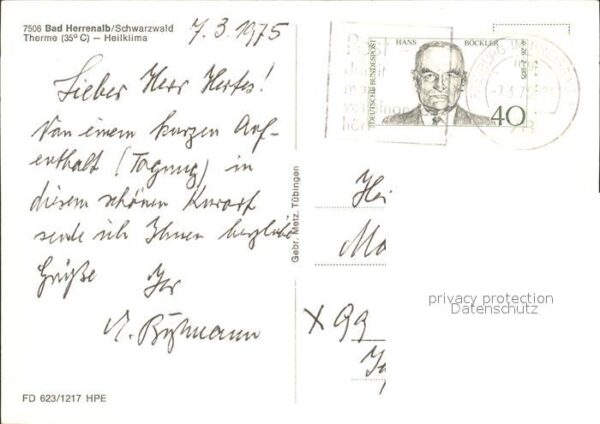 7506 Bad Herrenalb/Schwarzwald
Therme (35° C) – Heilklima
7.3.1975
Lieber Herr Hertes!
Von einem kurzen Auf-
enthalt (Tagung) in
diesem schönen Kurort
sende ich Ihnen herzliche
Grüße Ihr
FD 623/1217 HPE
Gebr. Metz, Tübingen
HANS BÖCKLER
DEUTSCHE BUNDESPOST
40
Hei
Ma
X 99
privacy protection
Datenschutz